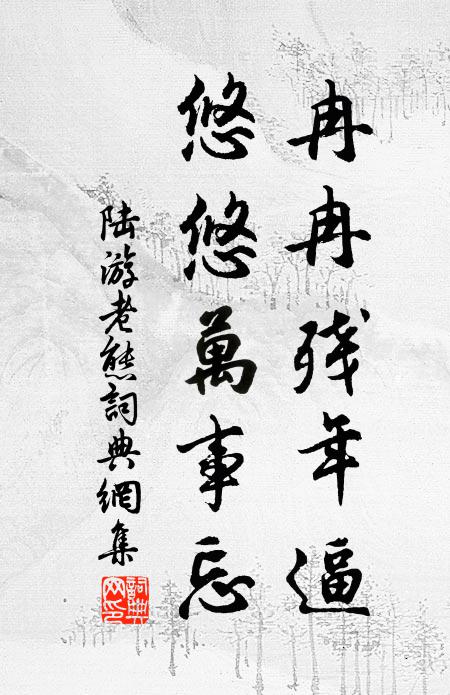 冉冉残年逼
悠悠萬事忘
陆游老態詞典網集
詞典